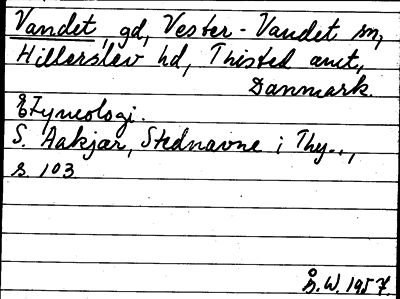 Vandet, gd, Vester-Vandet sn,
Hillerslev hd, Thisted amt,
Danmark.
Etymologi.
S. Aakjær, Stednavne i Thy..,
s. 103
Å.W. 1957.